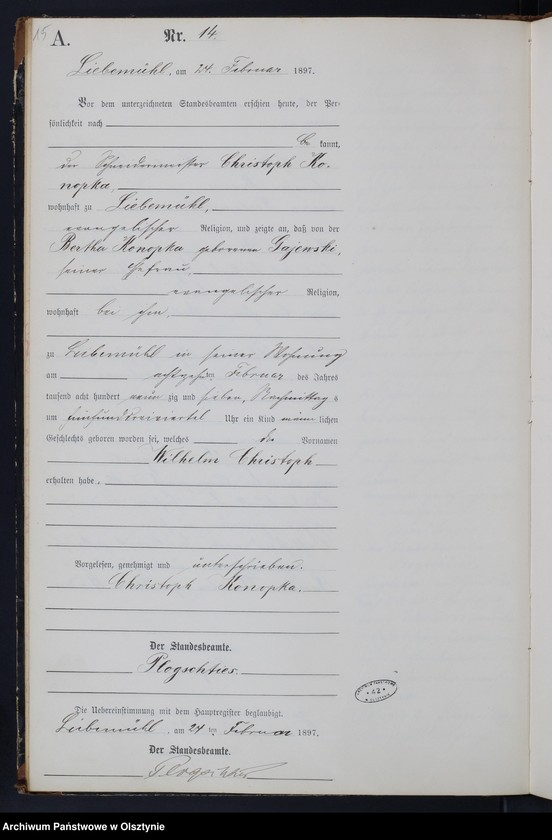 15
A.
Nr. 14.
Liebemühl, am 24. Februar 1897.
Vor dem unterzeichneten Standesbeamten erschien heute, der Per-
sönlichkeit nach
be kannt,
der Schneidermeister Christoph Ko-
nopka,
wohnhaft zu Liebemühl,
evangelischer Religion, und zeigte an, daß von der
Bertha Konopka geborenen Gajewski,
seiner Ehefrau,
evangelischer Religion,
wohnhaft bei ihm,
zu Liebemühl in seiner Wohnung
am achtzehn ten Februar des Jahres
tausend acht hundert neun zig und sieben, Nachmittags
um fünfunddreiviertel Uhr ein Kind männ lichen
Geschlechts geboren worden sei, welches die Vornamen
Wilhelm Christoph
erhalten habe.
Vorgelesen, genehmigt und unterschrieben.
Christoph Konopka.
Der Standesbeamte.
Plogschties.
Die Uebereinstimmung mit dem Hauptregister beglaubigt.
Liebemühl, am 24 ten Februar 1897.
Der Standesbeamte.
42
Archiwum Państwowe w Olsztynie